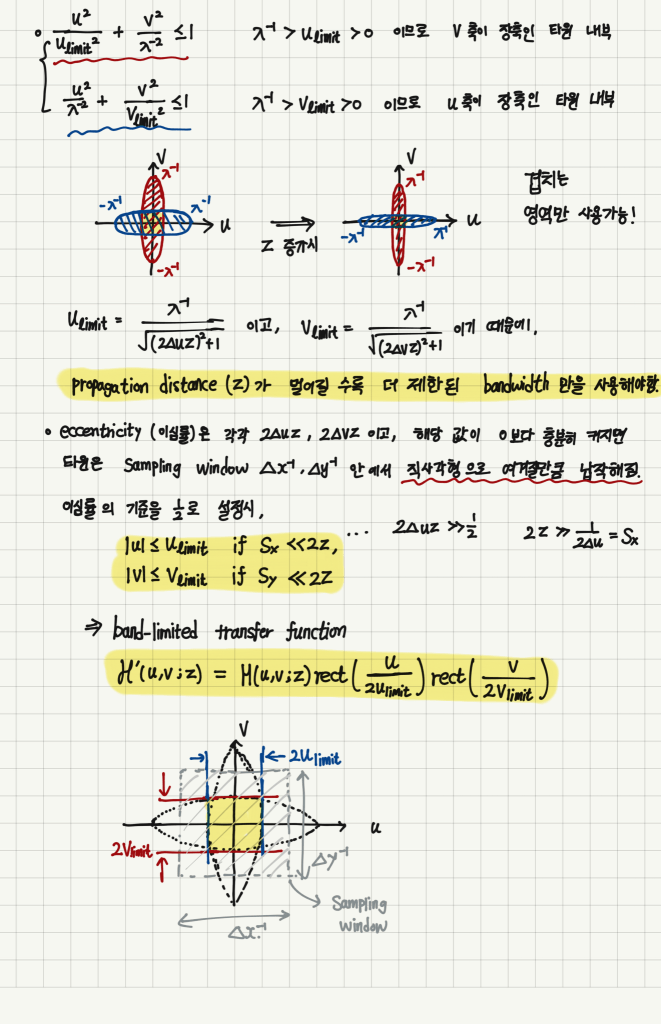 ∘ u²/u_limit² + v²/λ⁻² ≤ 1   λ⁻¹ > u_limit > 0 이므로 v 축이 장축인 타원 내부
u²/λ⁻² + v²/v_limit² ≤ 1   λ⁻¹ > v_limit > 0 이므로 u 축이 장축인 타원 내부
v λ⁻¹ -λ⁻¹ λ⁻¹ u -λ⁻¹
z 증가시
v λ⁻¹ u -λ⁻¹ λ⁻¹ -λ⁻¹
겹치는
영역만 사용가능!
u_limit = λ⁻¹/√((2Δuz)²+1) 이고, v_limit = λ⁻¹/√((2Δvz)²+1) 이기 때문에,
propagation distance (z)가 멀어질 수록 더 제한된 bandwidth 만을 사용해야함.
∘ eccentricity (이심률)은 각각 2Δuz, 2Δvz 이고, 해당 값이 0보다 충분히 커지면
타원은 Sampling window Δx⁻¹, Δy⁻¹ 안에서 직사각형으로 여겨질만큼 납작해짐.
이심률의 기준을 1/2로 설정시,
|u| ≤ u_limit if Sx << 2z, ... 2Δuz >> 1/2   2z >> 1/2Δu = Sx
|v| ≤ v_limit if Sy << 2z
⇒ band-limited transfer function
H'(u,v;z) = H(u,v;z) rect(u/2u_limit) rect(v/2v_limit)
v
2u_limit
u
2v_limit
Δy⁻¹
Sampling
window
Δx⁻¹